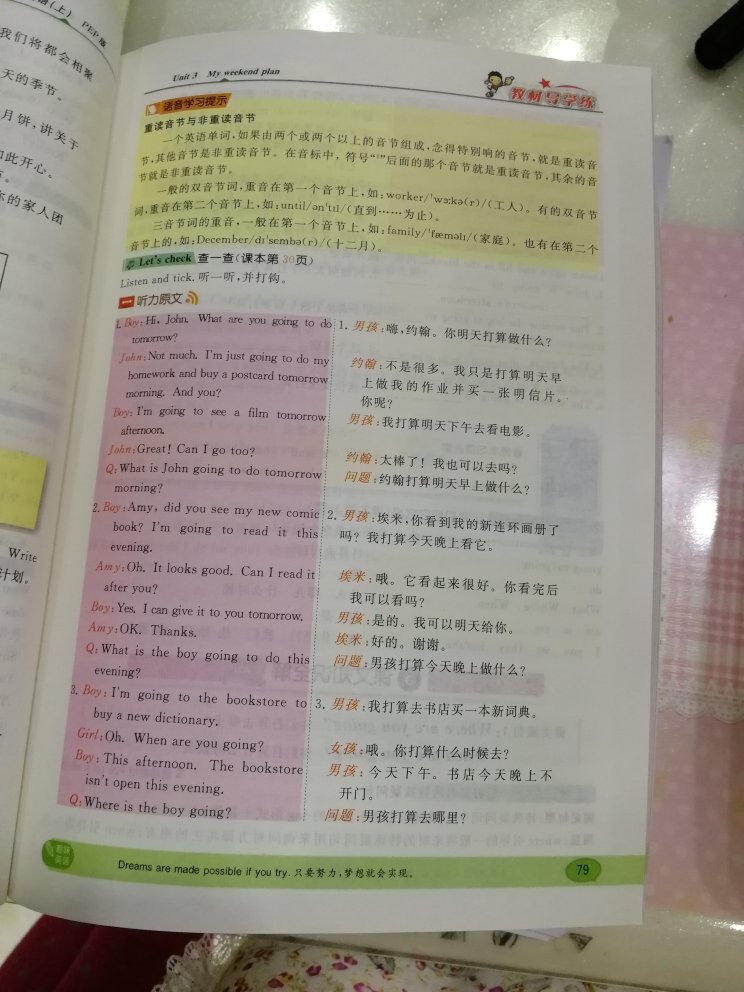 (上) PEP版
我们将都会相聚
天的季节。
月饼,讲关于
如此开心。
你的家人团
Write
计划。
Unit 3 My weekend plan
教材导学练
语音学习提示
重读音节与非重读音节
一个英语单词,如果由两个或两个以上的音节组成,念得特别响的音节,就是重读音
节,其他音节是非重读音节。在音标中,符号“'”后面的那个音节就是重读音节,其余的音
节就是非重读音节。
一般的双音节词,重音在第一个音节上,如:worker/'wɜːkə(r)/(工人)。有的双音节
词,重音在第二个音节上,如:until/ən'tɪl/(直到……为止)。
三音节词的重音,一般在第一个音节上,如:family/'fæməlɪ/(家庭)。也有在第二个
音节上的,如:December/dɪ'sembə(r)/(十二月)。
Let's check 查一查(课本第30页)
Listen and tick. 听一听,并打钩。
一 听力原文
1. Boy: Hi, John. What are you going to do
tomorrow?
John: Not much. I'm just going to do my
homework and buy a postcard tomorrow
morning. And you?
Boy: I'm going to see a film tomorrow
afternoon.
John: Great! Can I go too?
Q: What is John going to do tomorrow
morning?
2. Boy: Amy, did you see my new comic
book? I'm going to read it this
evening.
Amy: Oh. It looks good. Can I read it
after you?
Boy: Yes. I can give it to you tomorrow.
Amy: OK. Thanks.
Q: What is the boy going to do this
evening?
3. Boy: I'm going to the bookstore to
buy a new dictionary.
Girl: Oh. When are you going?
Boy: This afternoon. The bookstore
isn't open this evening.
Q: Where is the boy going?
1. 男孩:嗨,约翰。你明天打算做什么?
约翰:不是很多。我只是打算明天早
上做我的作业并买一张明信片。
你呢?
男孩:我打算明天下午去看电影。
约翰:太棒了!我也可以去吗?
问题:约翰打算明天早上做什么?
2. 男孩:埃米,你看到我的新连环画册了
吗?我打算今天晚上看它。
埃米:哦。它看起来很好。你看完后
我可以看吗?
男孩:是的。我可以明天给你。
埃米:好的。谢谢。
问题:男孩打算今天晚上做什么?
3. 男孩:我打算去书店买一本新词典。
女孩:哦。你打算什么时候去?
男孩:今天下午。书店今天晚上不
开门。
问题:男孩打算去哪里?
趣味
英语
Dreams are made possible if you try. 只要努力,梦想就会实现。
79